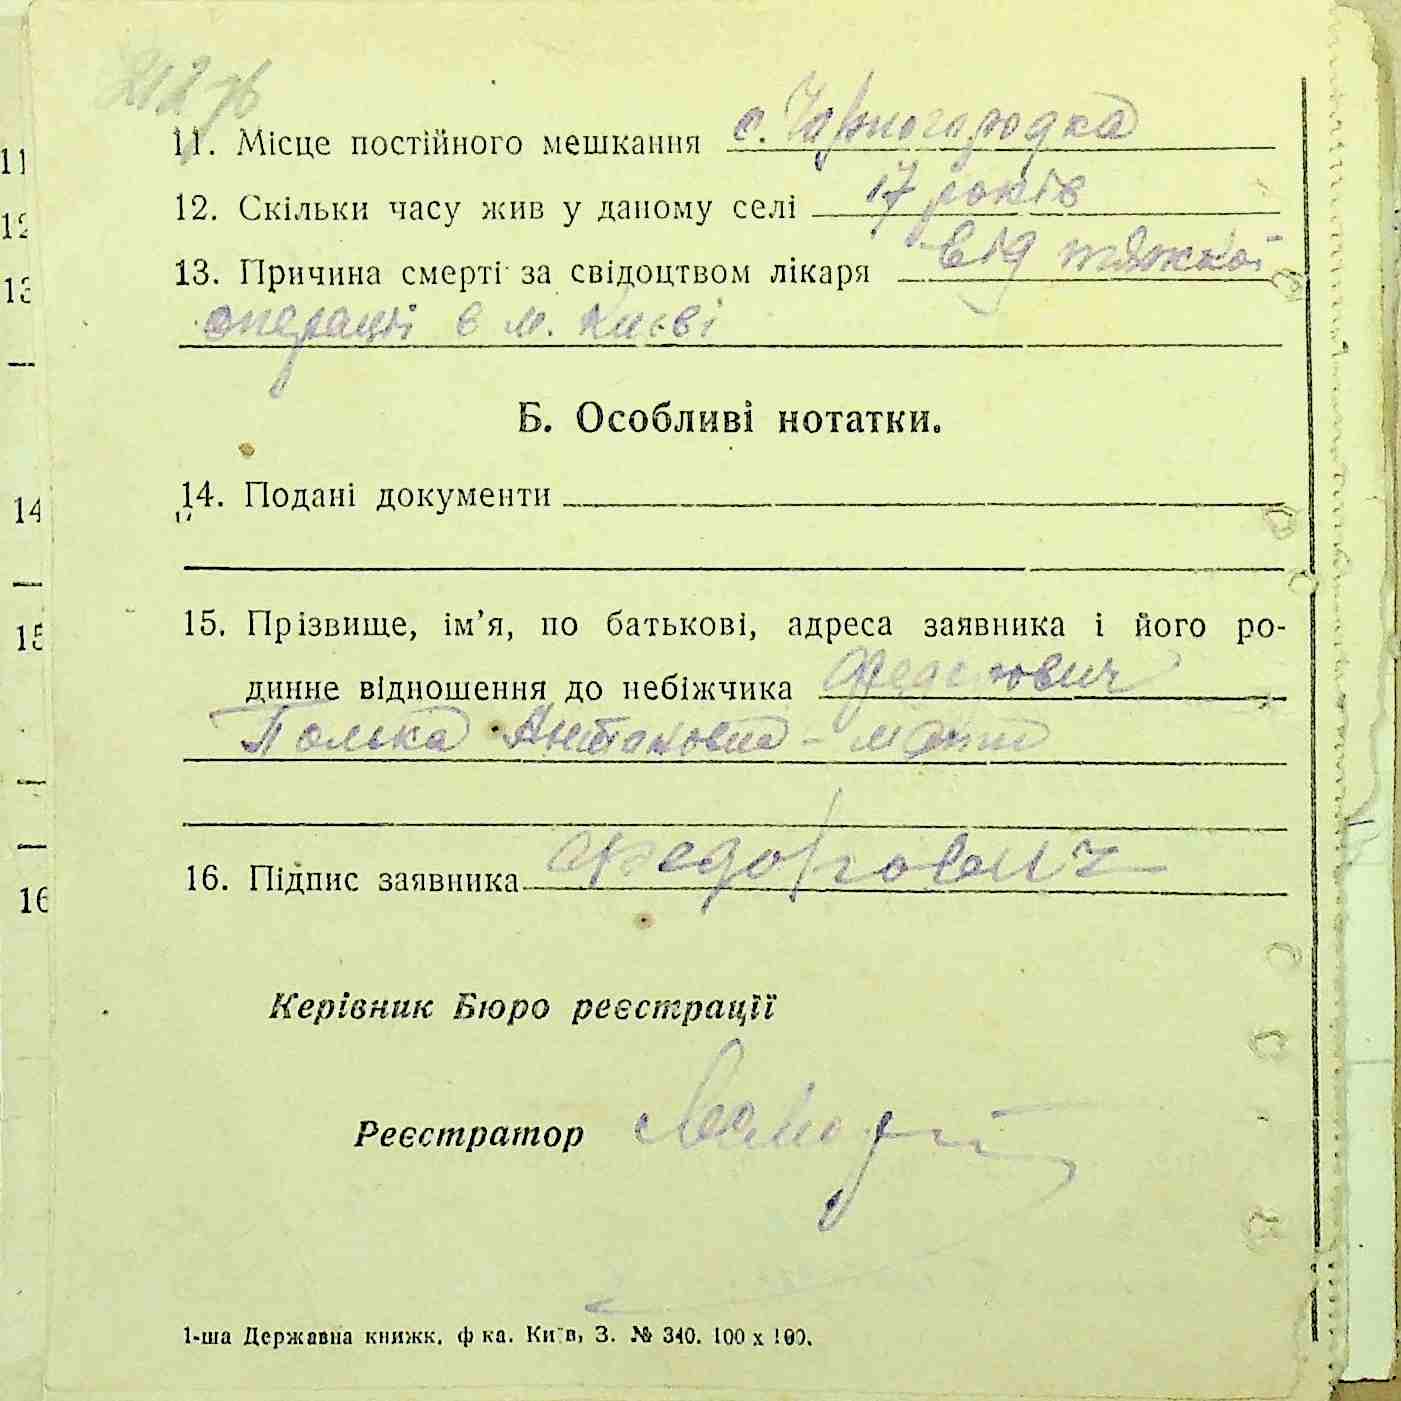 212 зв
11. Місце постійного мешкання с. Чорногородка
12. Скільки часу жив у даному селі 17 років
13. Причина смерті за свідоцтвом лікаря від тяжкої
операції в м. Києві
Б. Особливі нотатки.
14. Подані документи
15. Прізвище, ім’я, по батькові, адреса заявника і його ро-
динне відношення до небіжчика Федорович
Полька Антоновна - мати
16. Підпис заявника Федорович
Керівник Бюро реєстрації
Реєстратор
1-ша Державна книжк. ф ка. Київ, З. № 340. 100 х 100.
11
12
13
14
15
16